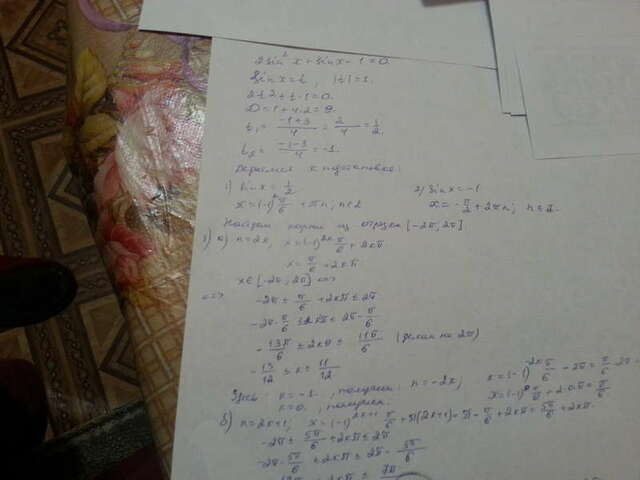 2sin² x + sin x - 1 = 0.
Sin x = t, |t| ≤ 1.
2t² + t - 1 = 0.
D = 1 + 4·2 = 9.
t₁ = (-1+3)/4 = 2/4 = 1/2.
t₂ = (-1-3)/4 = -1.
Вернемся к подстановке:
1) sin x = 1/2 2) sin x = -1
x = (-1)ⁿ π/6 + πn, n∈Z x = -π/2 + 2πn; n∈Z.
Найдем корни из отрезка [-2π; 2π]
1) а) n=2k, x = (-1)^2k π/6 + 2kπ
x = π/6 + 2kπ
x∈[-2π; 2π] <=>
<=> -2π ≤ π/6 + 2kπ ≤ 2π
-2π - π/6 ≤ 2kπ ≤ 2π - π/6
-13π/6 ≤ 2kπ ≤ 11π/6 (делим на 2π)
-13/12 ≤ k ≤ 11/12
Здесь: k = -1, получим: n = -2k, x = (-1)^-2k π/6 - 2π = π/6 - 2π =
k = 0, получим x = (-1)⁰ π/6 + 2·0π = π/6
б) n=2k+1; x = (-1)^2k+1 π/6 + π(2k+1) = π - π/6 + 2kπ = 5π/6 + 2kπ.
-2π ≤ 5π/6 + 2kπ ≤ 2π
-2π - 5π/6 ≤ 2kπ ≤ 2π - 5π/6
≤ 2kπ ≤ 7π